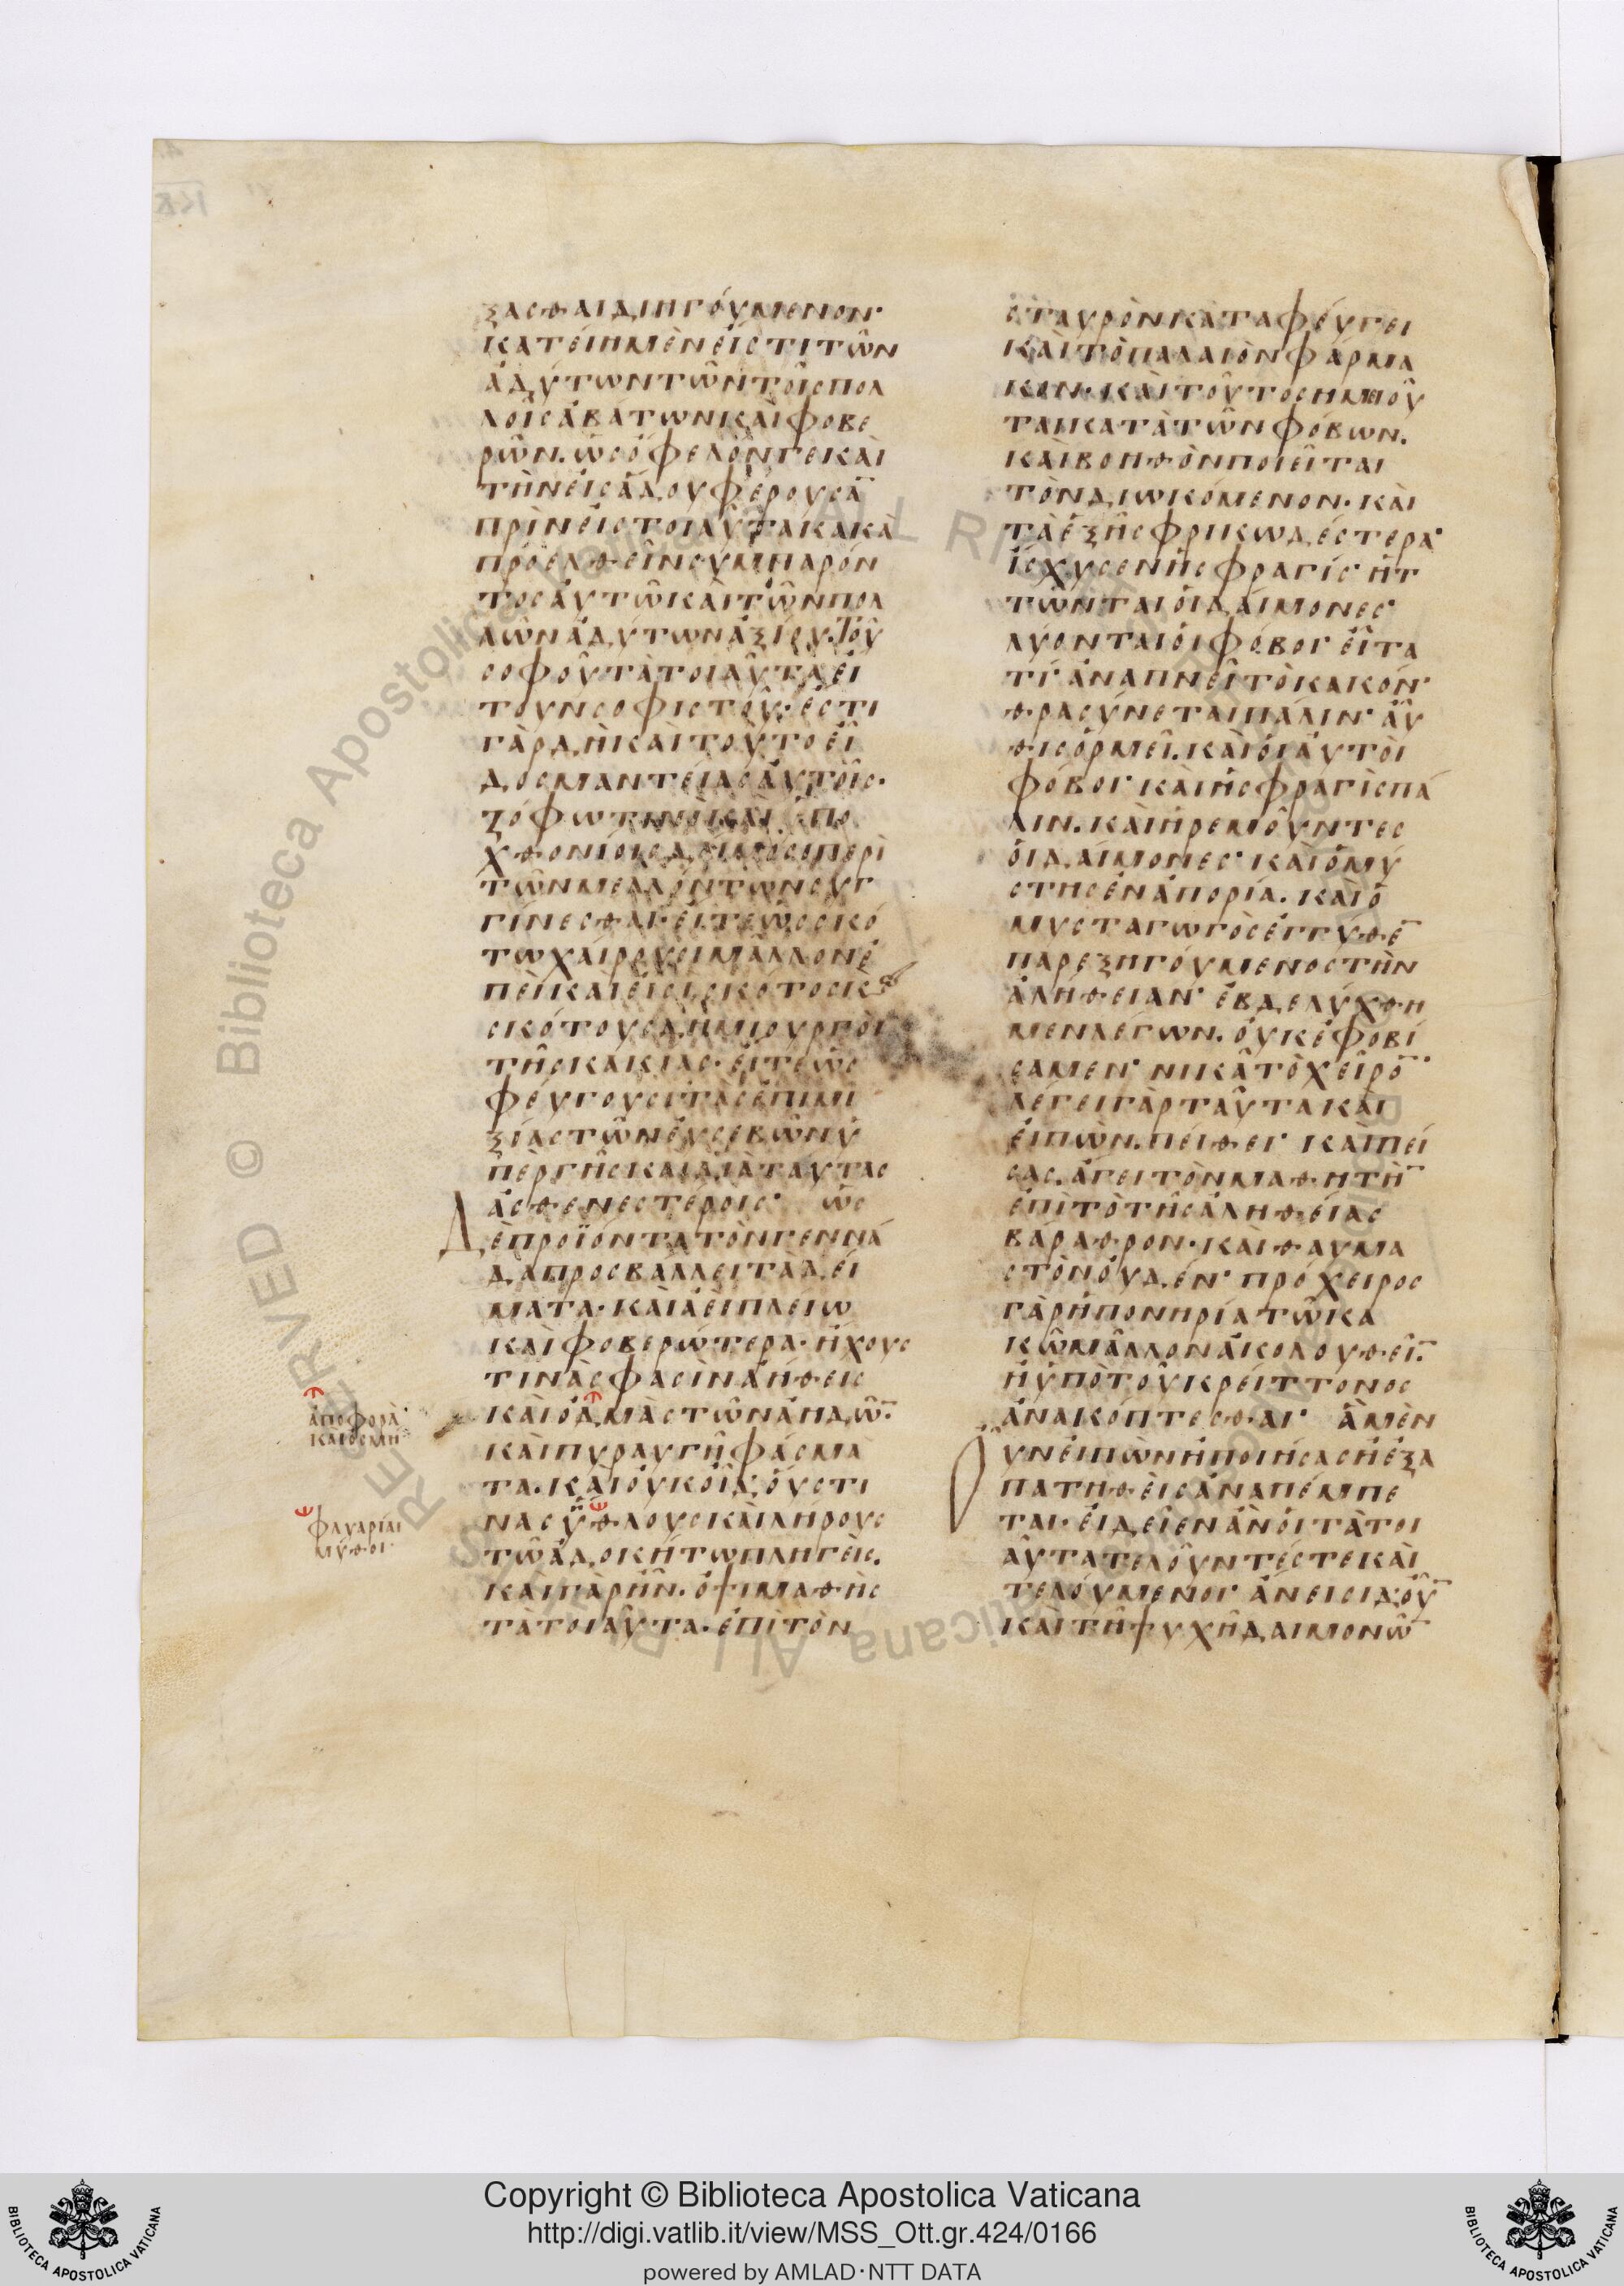 ξασθαι διηγούμενον·
κατείη μὲν εἴς τι τῶν
ἀδύτων τῶν τοῖς πολ
λοῖς ἀβάτων καὶ φοβε
ρῶν. ὡς ὄφελόν γε καὶ
τὴν εἰς ἅδου φέρουσα̅
πρὶν εἰς τοιαῦτα κακὰ
προελθεῖν συμπαρόν
τος αὐτῶ καὶ τῶν πολ
λῶν ἀδύτων ἀξίου. τοῦ
σοφοῦ τὰ τοιαῦτα εἴ
τουν σοφιστοῦ· ἔστι
γὰρ δὴ καὶ τοῦτο εἶ
δος μαντείας αὐτοῖς·
ζόφω τινὶ καὶ ὑπο
χθονίοις δαίμοσι περὶ
τῶν μελλόντων συγ
γίνεσθαι· εἴτε ὡς σκό
τω χαίρουσι μᾶλλον ἐ
πεὶ καί εἰσι σκότος κ(αὶ)
σκότους δημιουργοὶ
τῆς κακίας· εἴτε ὡς
φεύγουσι τὰς ἐπιμι
ξίας τῶν εὐσεβῶν ὑ
πὲρ γῆς καὶ διὰ ταύτας
ἀσθενεστέροις· ὡς
Δὲ προϊόντα τὸν γεννά
δα προσβάλλει τὰ δεί
ματα· καὶ ἀεὶ πλείω
καὶ φοβερώτερα· ἤχους
τινάς φασιν ἀήθεις
καὶ ὀδμὰς τῶν ἀηδῶ̅.
καὶ πυραυγῆ φάσμα
τα. καὶ οὐκ οἶδ' οὕς τι
νας ὕθλους καὶ λήρους
τῶ ἀδοκήτω πληγείς.
καὶ γὰρ ἦν. ὀψιμαθὴς
τὰ τοιαῦτα· ἐπὶ τὸν
ἀποφορὰ·
καὶ ὀσμή
φλυαρίαι
μῦθοι·
σταυρὸν καταφεύγει
καὶ τὸ παλαιὸν φάρμα
κον· καὶ τοῦτο σημειοῦ
ται κατὰ τῶν φόβων.
καὶ βοηθὸν ποιεῖται
τὸν διωκόμενον· καὶ
τὰ ἑξῆς φρικωδέστερα·
ἴσχυσεν ἡ σφραγίς· ἡτ
τῶνται οἱ δαίμονες·
λύονται οἱ φόβοι· εἶτα
τί· ἀναπνεῖ τὸ κακόν·
θρασύνεται πάλιν· αὖ
θις ὁρμεῖ. καὶ οἱ αὐτοὶ
φόβοι· καὶ ἡ σφραγὶς πά
λιν. καὶ ἠρεμοῦντες
οἱ δαίμονες· καὶ ὁ μύ
στης ἐν ἀπορία. καὶ ὁ
μυσταγωγὸς ἐγγύθε̅
παρεξηγούμενος τὴν
ἀλήθειαν· ἐβδελύχθη
μεν λέγων. οὐκ ἐφοβί
σαμεν· νικᾶ τὸ χεῖρο̅·
λέγει γὰρ ταῦτα καὶ
εἰπών. πείθει· καὶ πεί
σας. ἄγει τὸν μαθητὴ̅
ἐπὶ τὸ τῆς ἀληθείας
βάραθρον· καὶ θαυμα
στὸν οὐδέν· πρόχειρος
γὰρ ἡ πονηρία τῶ κα
κῶ μᾶλλον ἀκολουθεῖ̅.
ἢ ὑπὸ τοῦ κρείττονος
ἀνακόπτεσθαι· ἃ μὲν
Οὖν εἰπὼν ἢ ποιήσας ἢ ἐξα
πατηθεὶς ἀναπέμπε
ται· εἰδεῖεν ἂν οἱ τὰ τοι
αῦτα τελοῦντές τε καὶ
τελούμενοι· ἄνεισι δ' οὖ̅
καὶ τῆ ψυχῆ δαιμονῶ̅
Copyright © Biblioteca Apostolica Vaticana
http://digi.vatlib.it/view/MSS_Ott.gr.424/0166
powered by AMLAD·NTT DATA